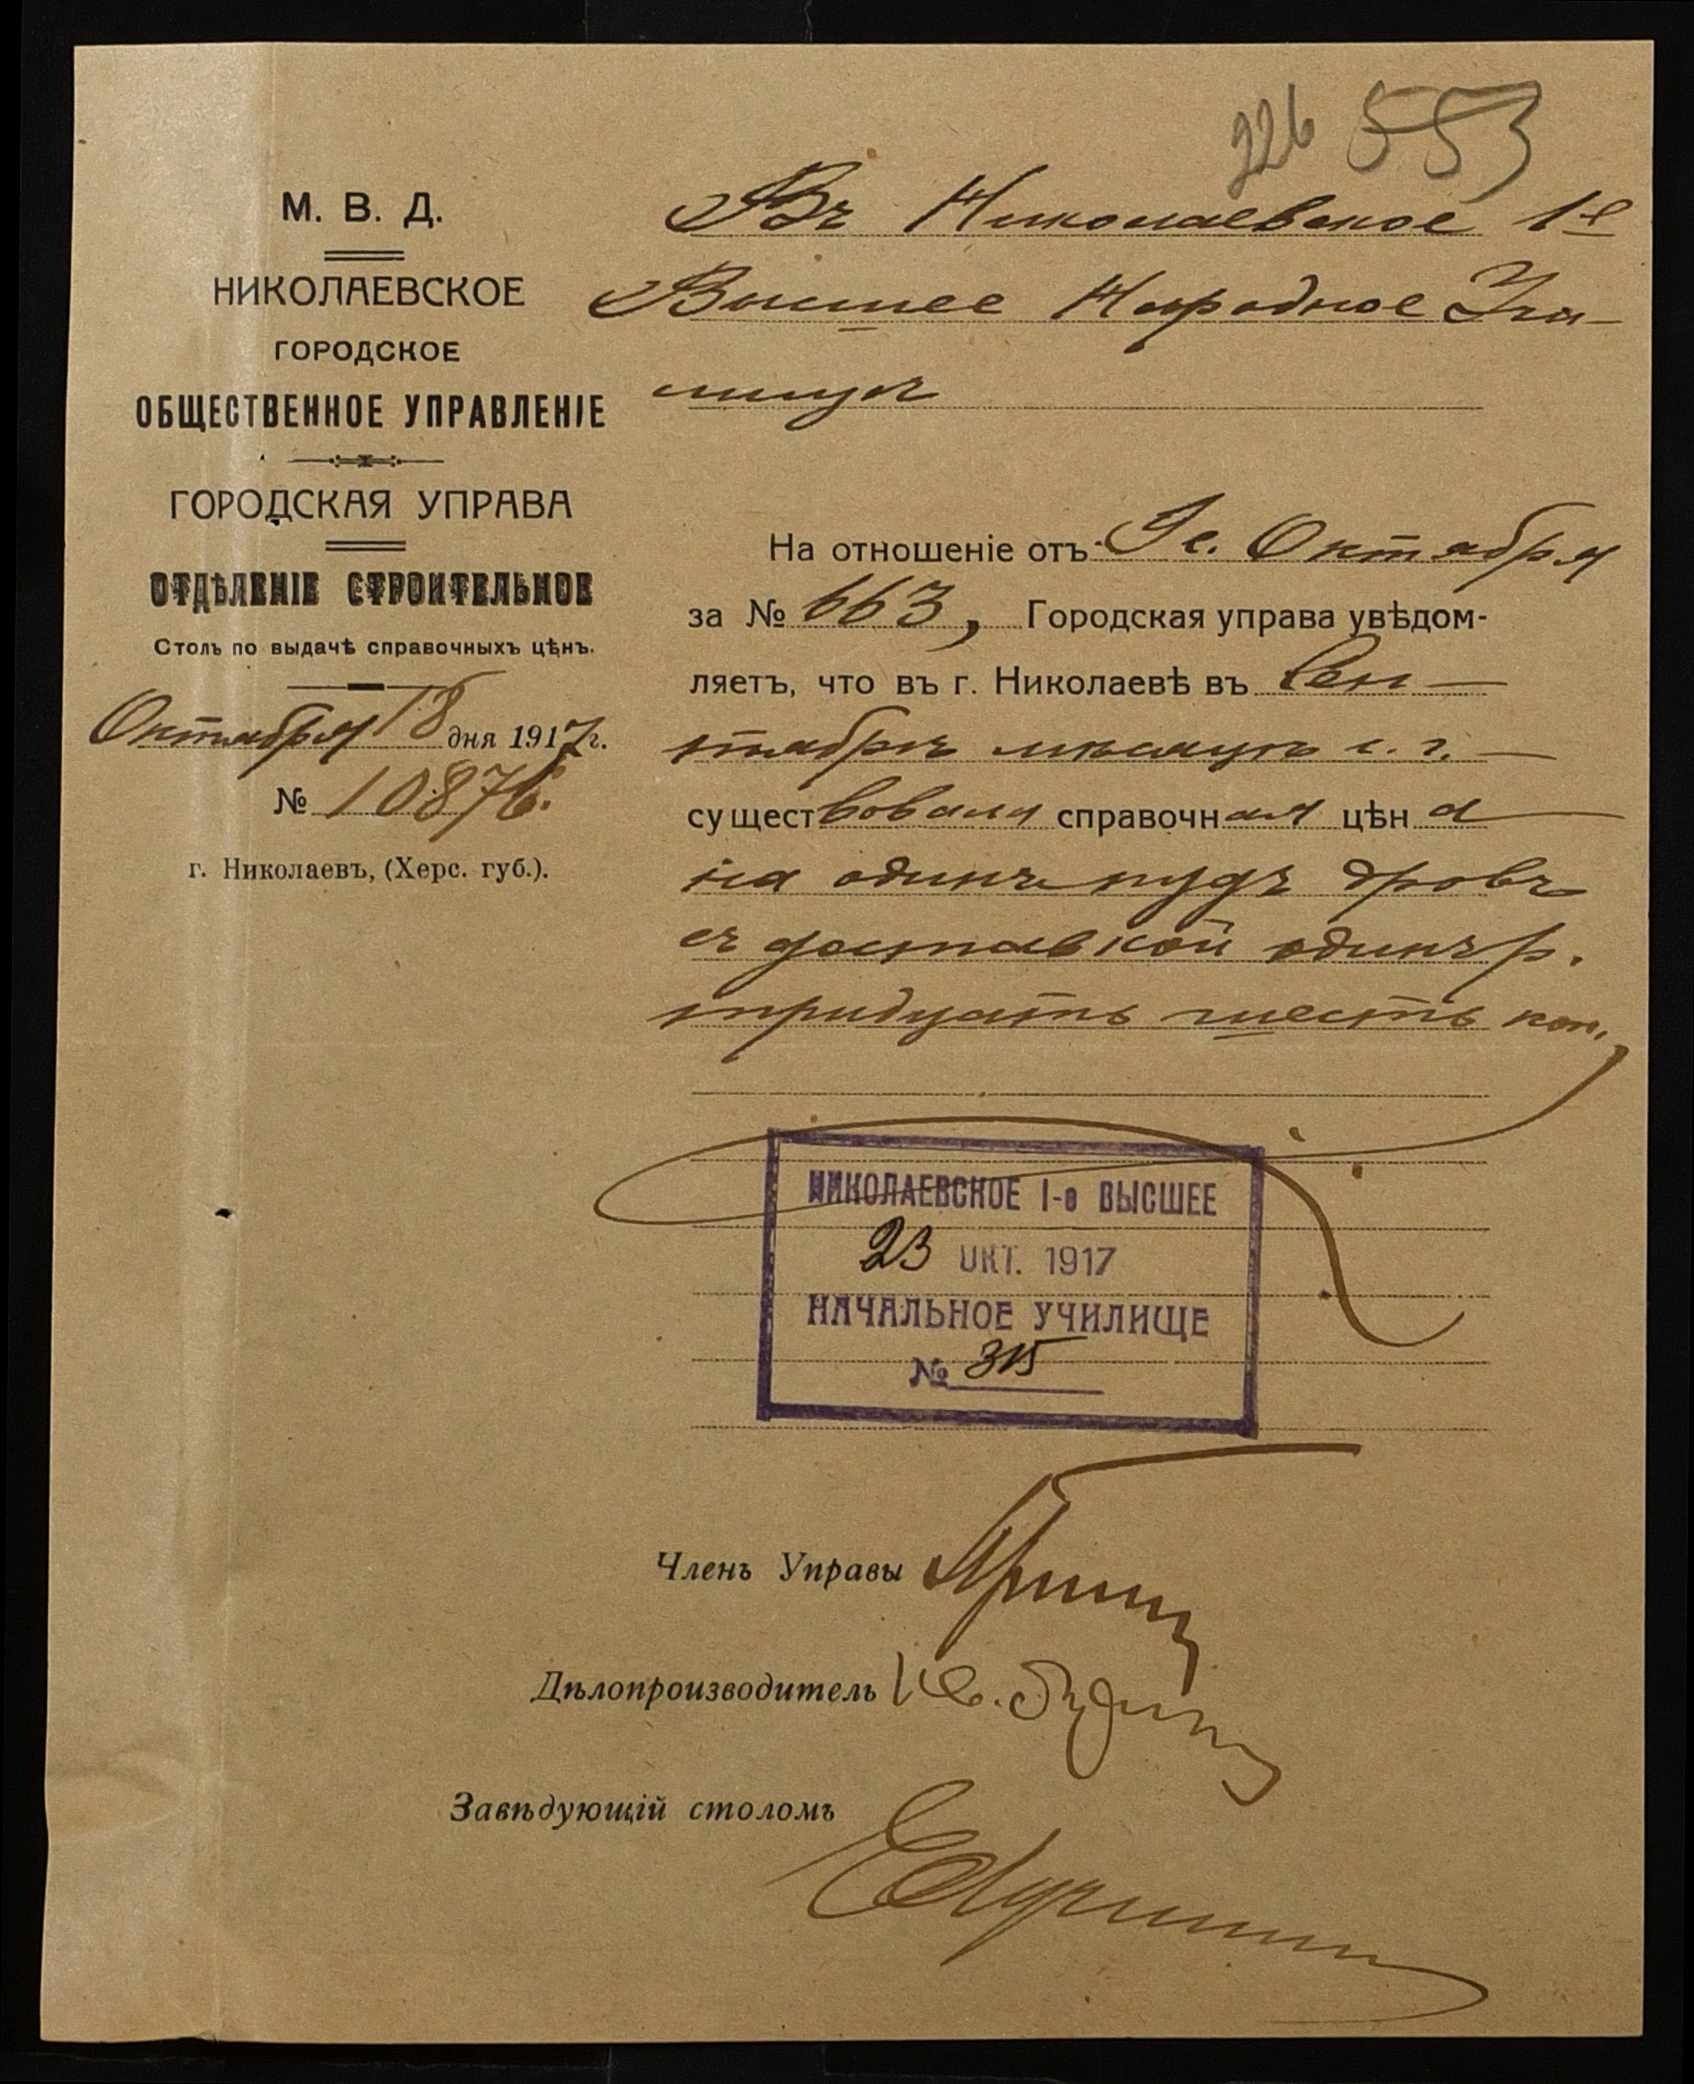 226 553
М. В. Д.
НИКОЛАЕВСКОЕ
ГОРОДСКОЕ
ОБЩЕСТВЕННОЕ УПРАВЛЕНІЕ
ГОРОДСКАЯ УПРАВА
ОТДѢЛЕНІЕ СТРОИТЕЛЬНОЕ
Столъ по выдачѣ справочныхъ цѣнъ.
Октября 18 дня 1917 г.
№ 10876.
г. Николаевъ, (Херс. губ.).
Въ Николаевское 1е
Высшее Народное Учи-
лище
На отношеніе отъ Октября
за № 663, Городская управа увѣдом-
ляетъ, что въ г. Николаевѣ въ Сен-
тябрѣ мѣсяцѣ с. г.
существовала справочная цѣна
на одинъ пудъ дровъ
съ доставкой одинъ р.
тридцать шесть коп.
НИКОЛАЕВСКОЕ 1-е ВЫСШЕЕ
23 ОКТ. 1917
НАЧАЛЬНОЕ УЧИЛИЩЕ
№ 315
Членъ Управы
Дѣлопроизводитель
Завѣдующій столомъ